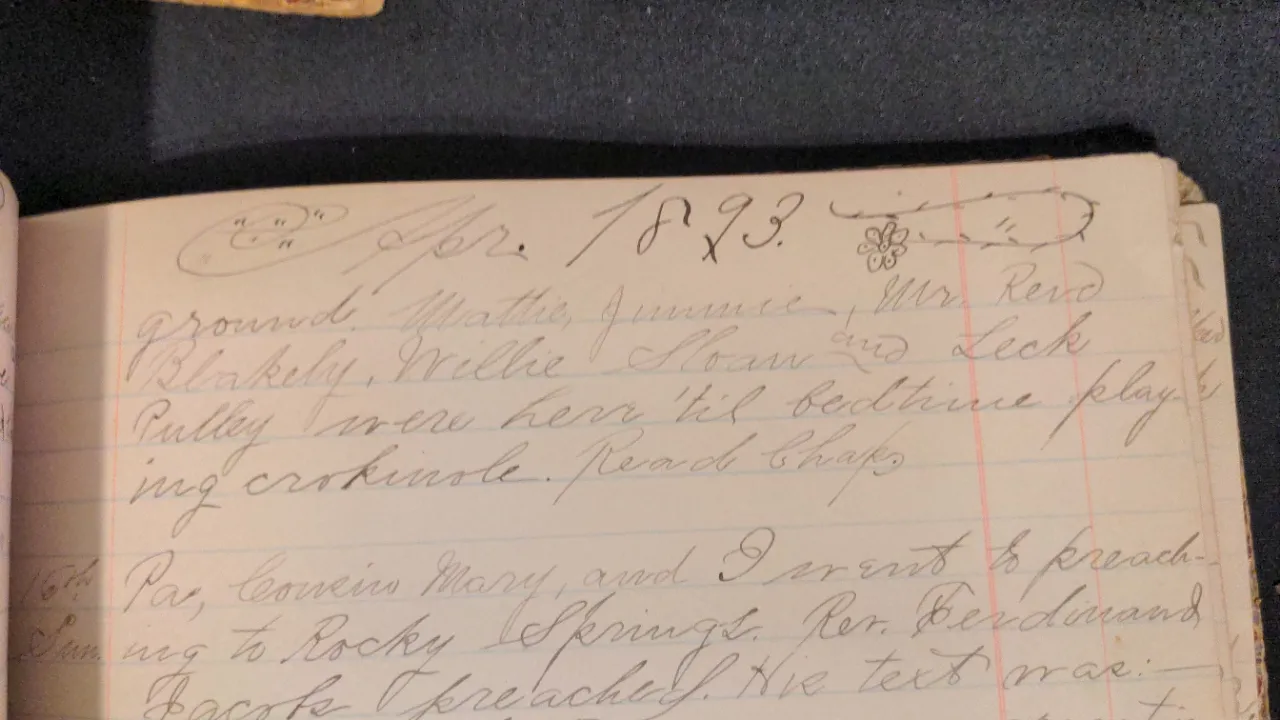 Apr. 1893.
ground. Mattie, Jimmie, Mr. Reid
Blakely, Willie Sloan and Leck
Pulley were here 'til bedtime play-
ing crokinole. Read Chaps
16th Pa, Cousin Mary, and I went to preach-
Sun. ing to Rocky Springs. Rev. Ferdinand
Jacobs preached. His text was:—